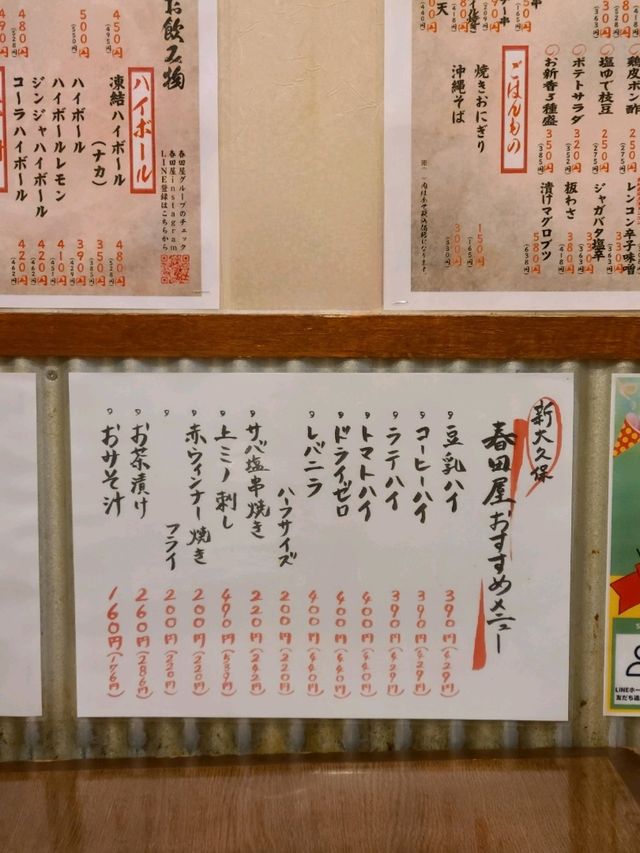 お飲み物
450円
(495円)
500円
480円
ハイボール
凍結ハイボール 480円 (528円)
(ナカ) 350円 (385円)
ハイボール 390円 (429円)
ハイボールレモン 410円 (451円)
ジンジャハイボール 420円 (462円)
コーラハイボール 420円 (462円)
春田屋グループのチェック
春田屋instagram
LINE登録はこちらから
鶏皮ポン酢 250円
塩ゆで枝豆 250円 (275円)
ポテトサラダ 320円 (352円)
お新香3種盛 350円 (385円)
レンコン辛子味噌 330円
ジャガバタ塩辛 330円 (363円)
板わさ 380円 (418円)
漬けマグロブツ 580円 (638円)
ごはんもの
焼きおにぎり 150円 (165円)
沖縄そば 300円 (330円)
新大久保
春田屋おすすめメニュー
豆乳ハイ 390円(429円)
コーヒーハイ 390円(429円)
ラテハイ 390円(429円)
トマトハイ 400円(440円)
ドライゼロ 400円(440円)
レバニラ 400円(440円)
ハーフサイズ 200円(220円)
サバ塩串焼き 220円(242円)
上ミノ刺し 490円(539円)
赤ウィンナー焼き 200円(220円)
フライ 200円(220円)
お茶漬け 260円(286円)
おみそ汁 160円(176円)
LINEホー
友だち追